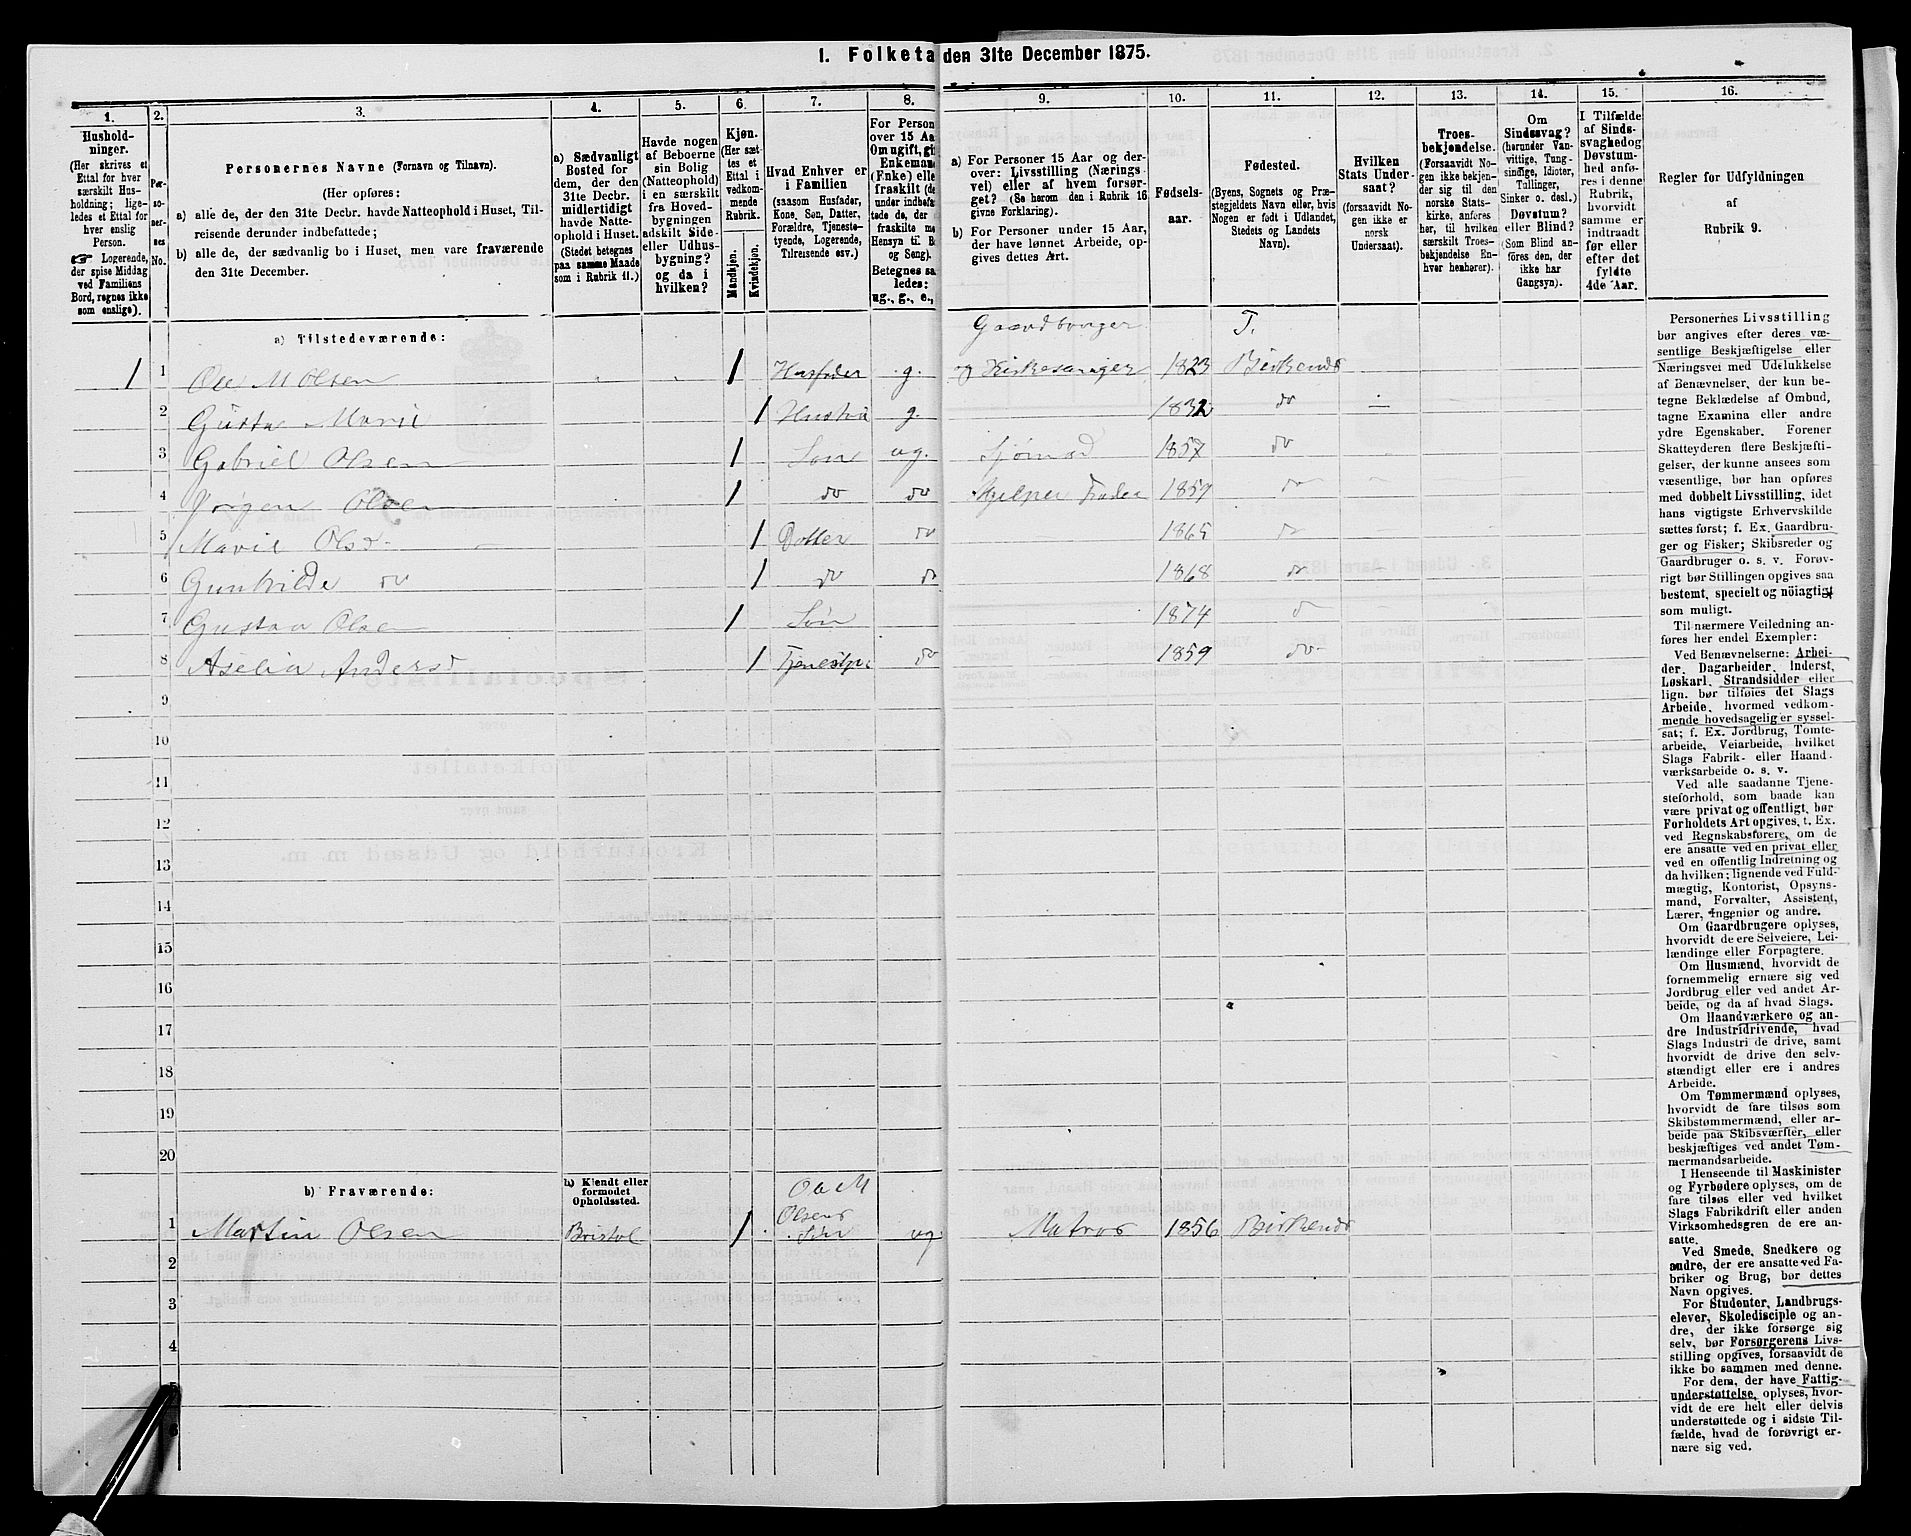 1. Folketa den 31te December 1875.
1. 2. 3. 4. 5. 6. 7. 8. 9. 10. 11. 12. 13. 14. 15. 16.
Hushold-
ninger.
(Her skrives et
Ettal for hver
særskilt Hus-
holdning; lige-
ledes et Ettal for
hver enslig
Person.
☞ Logerende,
der spise Middag
ved Familiens
Bord, regnes ikke
som enslige).
Per-
so-
ner-
nes
No.
Personernes Navne (Fornavn og Tilnavn).
(Her opføres:
a) alle de, der den 31te Decbr. havde Natteophold i Huset, Til-
reisende derunder indbefattede;
b) alle de, der sædvanlig bo i Huset, men vare fraværende
den 31te December.
a) Sædvanligt
Bosted for
dem, der den
31te Decbr.
midlertidigt
havde Natte-
ophold i Huset.
(Stedet betegnes
paa samme Maade
som i Rubrik 11.)
Havde nogen
af Beboerne
sin Bolig
(Natteophold)
i en særskilt
fra Hoved-
bygningen
adskilt Side-
eller Udhus-
bygning?
og da i
hvilken?
Kjøn.
(Her sæt-
tes et
Ettal i
vedkom-
mende
Rubrik.
Mandkjøn.
Kvindekjøn.
Hvad Enhver er
i Familien
(saasom Husfader,
Kone, Søn, Datter,
Forældre, Tjeneste-
tyende, Logerende,
Tilreisende osv.)
For Person
over 15 Aa
Om ugift, gi
Enkema
(Enke) elle
fraskilt (de
under indbefat
tede de, der
fraskilte m
Hensyn til B
og Seng).
Betegnes sa
ledes:
ug., g., e.,
a) For Personer 15 Aar og der-
over: Livsstilling (Nærings-
vei) eller af hvem forsør-
get? (Se herom den i Rubrik 16
givne Forklaring).
b) For Personer under 15 Aar,
der have lønnet Arbeide, op-
gives dettes Art.
Fødsels-
aar.
Fødested.
(Byens, Sognets og Præ-
stegjeldets Navn eller, hvis
Nogen er født i Udlandet,
Stedets og Landets
Navn).
Hvilken
Stats Under-
saat?
(forsaavidt No-
gen ikke er
norsk
Undersaat).
Troes-
bekjendelse.
(Forsaavidt No-
gen ikke bekjen-
der sig til den
norske Stats-
kirke, anføres
her, til hvilken
særskilt Troes-
bekjendelse En-
hver henhører).
Om
Sindssvag?
(herunder Van-
vittige, Tung-
sindige, Idioter,
Tullinger,
Sinker o. desl.)
Døvstum?
eller Blind?
(Som Blind an-
føres den, der
ikke har
Gangsyn).
I Tilfælde
af Sinds-
svaghed og
Døvstum-
hed anfø-
res i denne
Rubrik,
hvorvidt
samme er
indtraadt
før eller
efter det
fyldte
4de Aar.
Regler for Udfyldningen
af
Rubrik 9.
a) Tilstedeværende:
Gaardbruger T.
1 1 Ole M Olsen 1 Husfader g. og Kirkesanger 1823 Birkenæs
2 Gusta Marie 1 Hustru g. 1832 do
3 Gabriel Olsen 1 Søn ug. Sjømad 1857 do
4 Jørgen Olsen 1 do do Hjelper Fader 1859 do
5 Marie Olsd 1 Dotter do 1865 do
6 Gunhilde do 1 do do 1868 do
7 Gustav Olsen 1 Søn 1874 do
8 Aselia Andersd 1 do 1859 do
9
10
11
12
13
14
15
16
17
18
19
20
b) Fraværende:
b) Kjendt eller
formodet
Opholdssted.
Ole M
Olsens
1 Martin Olsen Bristol 1 Søn ug Matros 1856 Birkenæs
2
3
4
5
6
Personernes Livsstilling
bør angives efter deres væ-
sentlige Beskjæftigelse eller
Næringsvei med Udelukkelse
af Benævnelser, der kun be-
tegne Beklædelse af Ombud,
tagne Examina eller andre
ydre Egenskaber. Forener
Skatteyderen flere Beskjæfti-
gelser, der kunne ansees som
væsentlige, bør han opføres
med dobbelt Livsstilling, idet
hans vigtigste Erhvervskilde
sættes først; f. Ex. Gaardbru-
ger og Fisker; Skibsreder og
Gaardbruger o. s. v. Forøv-
rigt bør Stillingen opgives saa
bestemt, specielt og nöiagtigt
som muligt.
Til nærmere Veiledning an-
føres her endel Exempler:
Ved Benævnelserne: Arbei-
der, Dagarbeider, Inderst,
Løskarl, Strandsidder eller
lign. bør tilføies det Slags
Arbeide, hvormed vedkom-
mende hovedsagelig er syssel-
sat; f. Ex. Jordbrug, Tomte-
arbeide, Veiarbeide, hvilket
Slags Fabrik- eller Haand-
værksarbeide o. s. v.
Ved alle saadanne Tjene-
steforhold, som baade kan
være privat og offentligt, bør
Forholdets Art opgives, t. Ex.
ved Regnskabsførere, om de
ere ansatte ved en privat eller
ved en offentlig Indretning og
da hvilken; lignende ved Fuld-
mægtig, Kontorist, Opsyns-
mand, Forvalter, Assistent,
Lærer, Ingeniør og andre.
Om Gaardbrugere oplyses,
hvorvidt de ere Selveiere, Lei-
lændinge eller Forpagtere.
Om Husmænd, hvorvidt de
fornemmelig ernære sig ved
Jordbrug eller ved andet Ar-
beide, og da af hvad Slags.
Om Haandværkere og an-
dre Industridrivende, hvad
Slags Industri de drive, samt
hvorvidt de drive den selv-
stændigt eller ere i andres
Arbeide.
Om Tømmermænd oplyses,
hvorvidt de fare tilsøs som
Skibstømmermænd, eller ar-
beide paa Skibsværfter, eller
beskjæftiges ved andet Tøm-
mermandsarbeide.
I Henseende til Maskinister
og Fyrbødere oplyses, om de
fare tilsøs eller ved hvilket
Slags Fabrikdrift eller anden
Virksomhedsgren de ere an-
satte.
Ved Smede, Snedkere og
andre, der ere ansatte ved Fa-
briker og Brug, bør dettes
Navn opgives.
For Studenter, Landbrugs-
elever, Skoledisciple og an-
dre, der ikke forsørge sig
selv, bør Forsørgerens Livs-
stilling opgives, forsaavidt de
ikke bo sammen med denne.
For dem, der have Fattig-
understøttelse, oplyses, hvor-
vidt de ere helt eller delvis
understøttede og i sidste Til-
fælde, hvad de forøvrigt er-
nære sig ved.